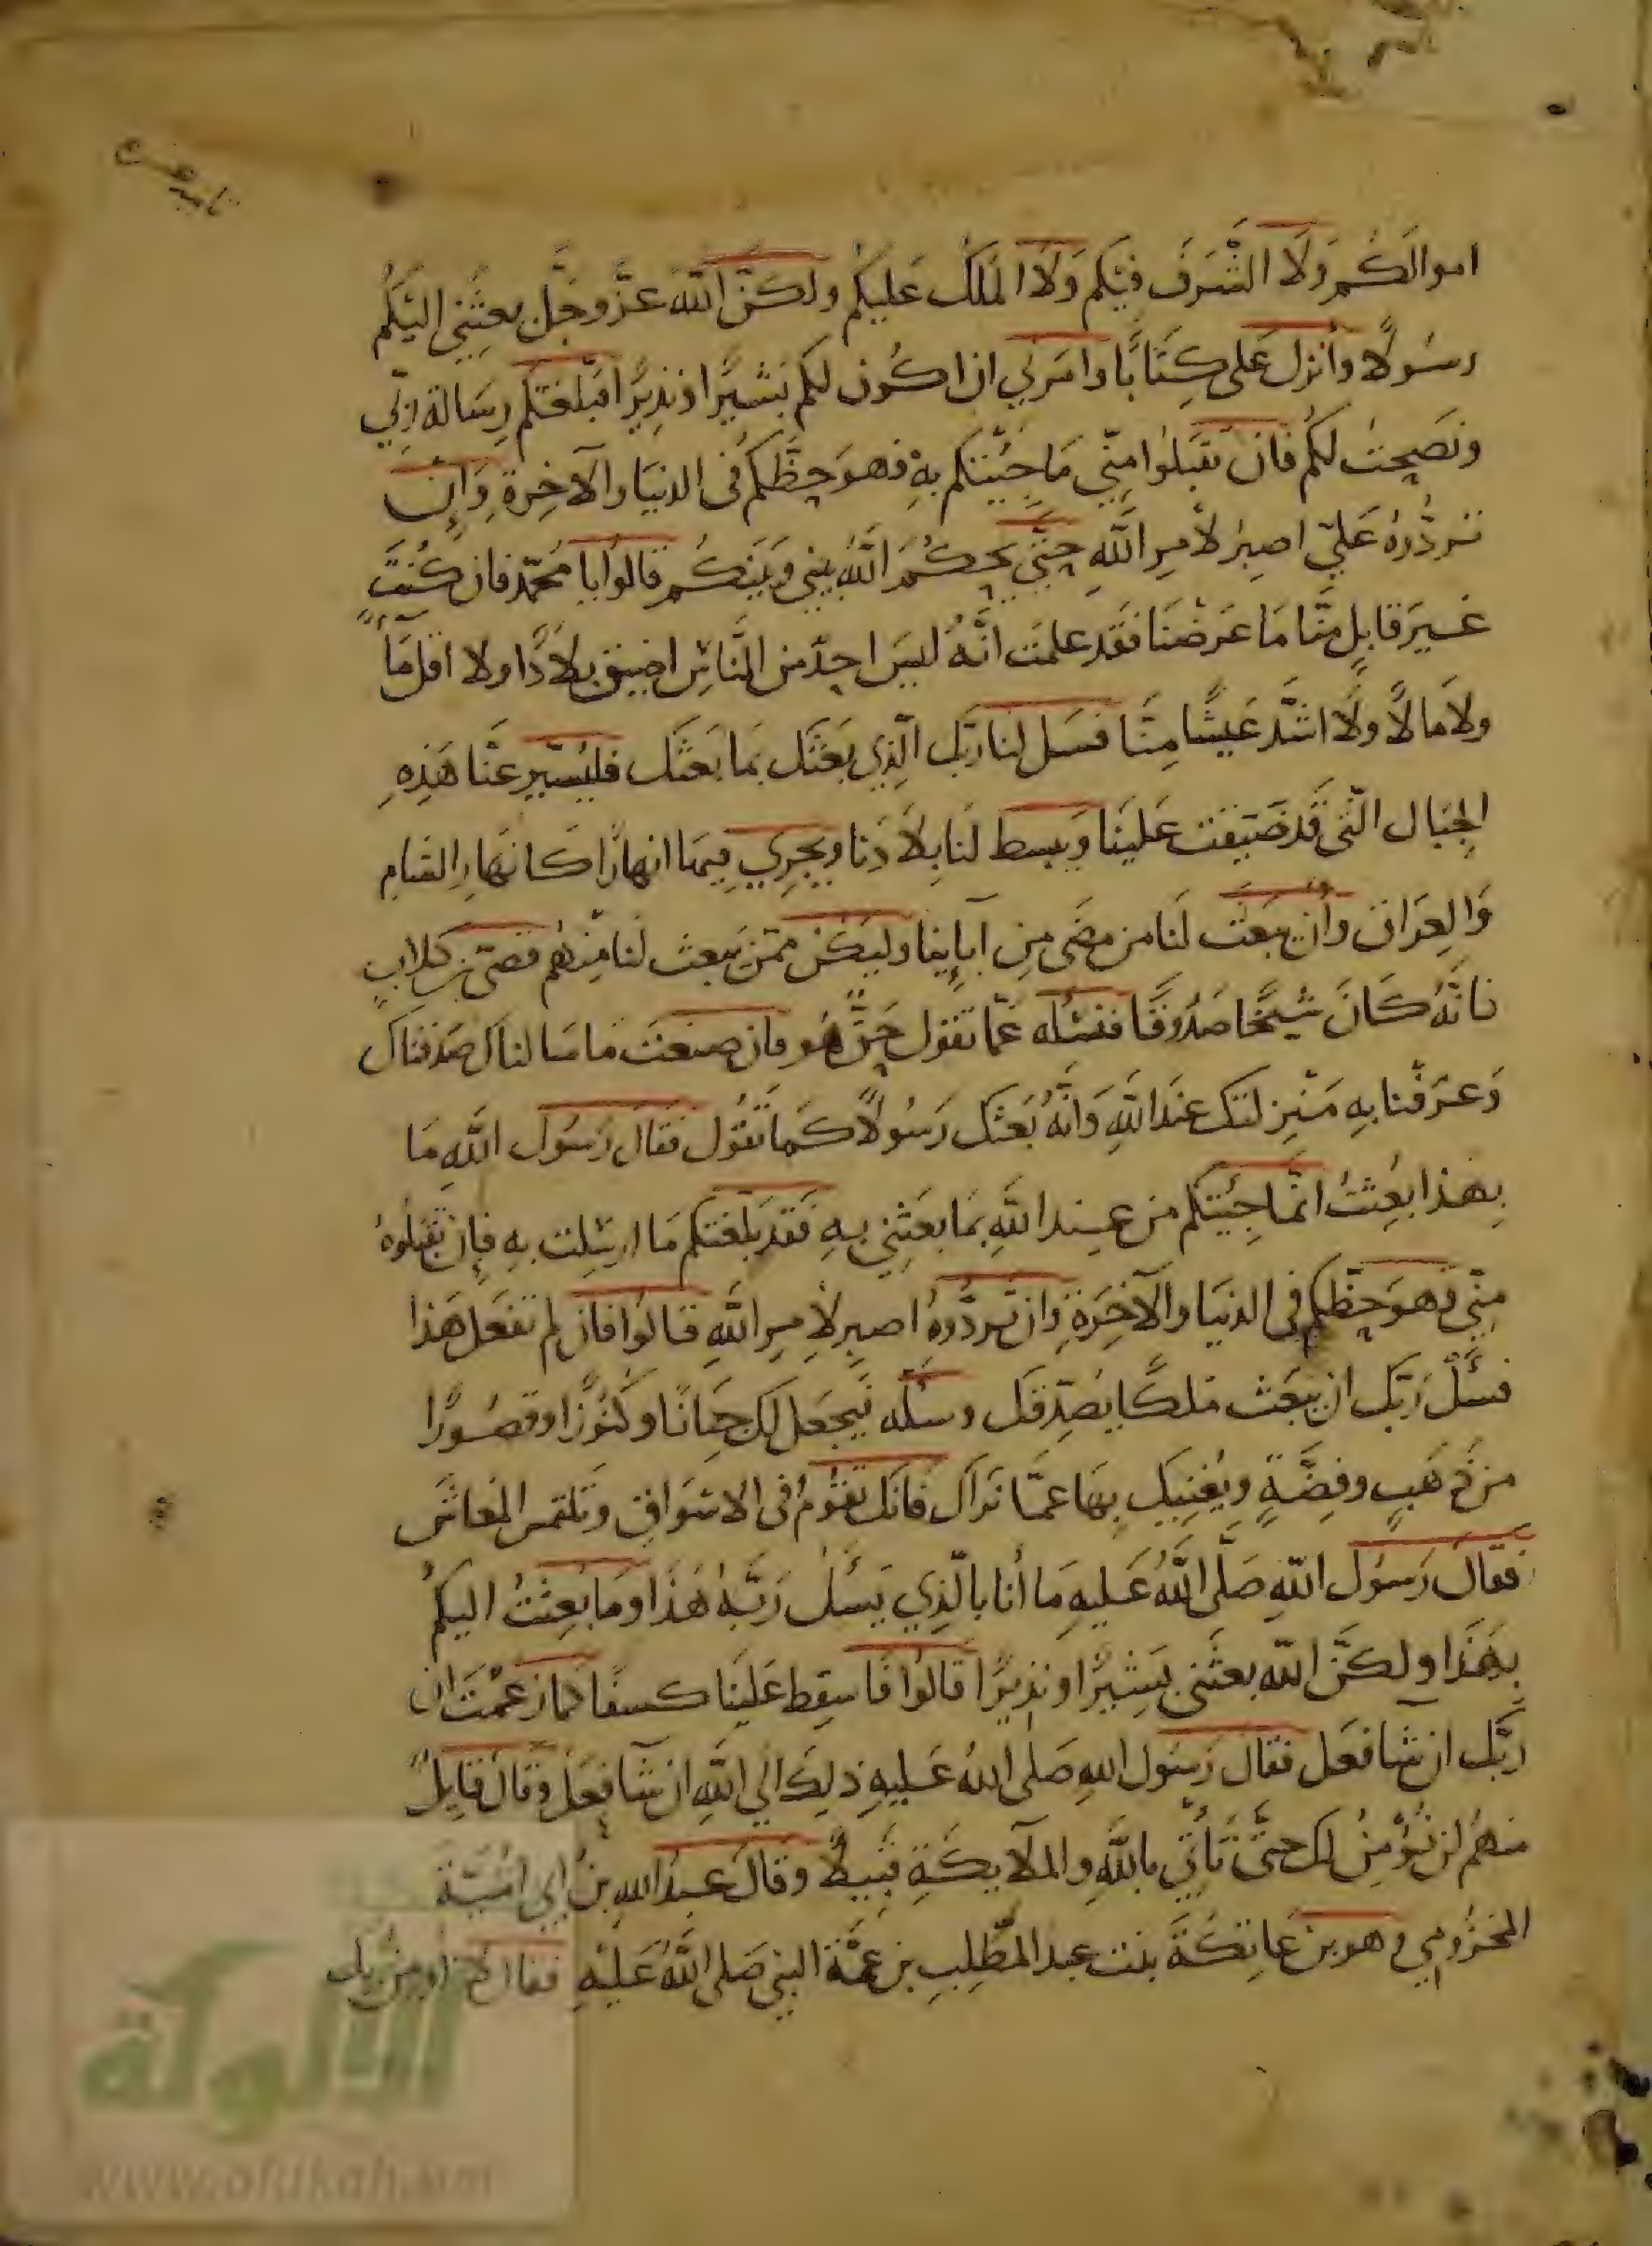 اموالكم ولا الشَرف فيكم ولا المَلك عَليكم ولكنّ اللّه عزّ وجَل بعثني اليكم
رسُولاً وأنزل عَلى كِتَابًا وامرني ان اكُون لكم بَشيرًا ونذيرًا فبلغتكم رِسَالة ربّي
ونصَحتُ لكم فان تقبَلوا مِنّي مَا جِئتكم بِهِ فهو حظّكم فى الدنيَا والآخِرة وَإِن
تردُّوهُ عَليّ اصبِرُ لأمرِ اللَّهِ حتّي يحكُمَ اللَّهُ بيني وبَينكُم قالوا يا محمّد فان كُنتَ
غَيرَ قابِلٍ منّا مَا عَرضنَا فقَد علمَت انَّهُ ليسَ احدٌ من النَّاسِ اضيق بلادًا ولا اقل مَآءً
ولا مالاً ولا اشدّ عَيشًا مِنَّا فسَل لنا ربّك الّذِي بَعثَك بمَا بعَثك فليُسَيّر عنَّا هَذِهِ
الجِبَال الّتى قَد ضَيقت عَلينَا وَيبسط لنا بِلاَدَنا ويجرِي فِيهَا انهارًا كانهارِ الشامِ
وَالعِرَاق وأن يبَعث لنا من مضَى مِن آبآئِنا وليكُن ممّن يَبعث لنا مِنهُم قصىّ بن كلابٍ
فانَّهُ كَانَ شيخًا صَدُوقًا فنسْئله عمّا تقول حَقٌّ هُو فان صنعتَ ما سَالناك صَدقناك
وَعرَفنا بِهِ مَنزِلتك عندَ اللَّهِ وَانَّهُ بَعثك رَسُولاً كمَا تقُول فقالَ رَسُول اللَّهِ مَا
بِهَذا بعِثتُ انمَّا جِئتكم من عِند اللَّهِ بمَا بعَثني بِهِ فقَد بَلغتكم مَا ارسِلت بِهِ فإن تقبَلُوهُ
مِنّي فهوَ حظّكم فى الدنيَا والآخِرَةِ وان تردُّوهُ اصبِر لأمرِ اللَّهِ قالُوا فان لم تفعَل هَذا
فسَلْ رَبّك ان يبعَث ملكًا يصَدّقك وسَله فَيَجعَل لك جنَانًا وكنُوزًا وقصُورًا
من ذَهَبٍ وفِضَّةٍ ويُغنِيك بِهَا عمَّا نَراك فَانّك تقُومُ فى الاسوَاقِ وتلتمس المعَاشَ
فقالَ رَسوُل اللَّهِ صَلَّى اللَّهُ عَليهِ مَا أنا بالّذِي يَسئَلُ رَبَّهُ هَذَا وَمَا بُعِثتُ اليكمُ
بِهَذَا ولكنَّ اللّه بعثَني بَشِيرًا ونذِيرًا قالُوا فَاسقِط عَلينَا كسفًا كما زعَمْتَ ان
رَبَّك ان شآ فعَل فقالَ رَسُول اللهِ صَلى اللهُ عَليهِ ذلِكَ الي اللَّهِ ان شآ فعَلَ وقالَ قآئِلٌ
منهُم لن نُؤمِنُ لك حتىَّ تَأتي باللَّهِ والملآئِكَةِ قبيلاً وقالَ عبدُ اللهِ بنُ ابي اميَّة
المخزُومِي وهو بن عَاتِكَةَ بنت عبد المطّلِبِ بن عمَّة النبي صَلى اللَّهُ عَليْهِ فقال
الألوكة
www.alukah.net